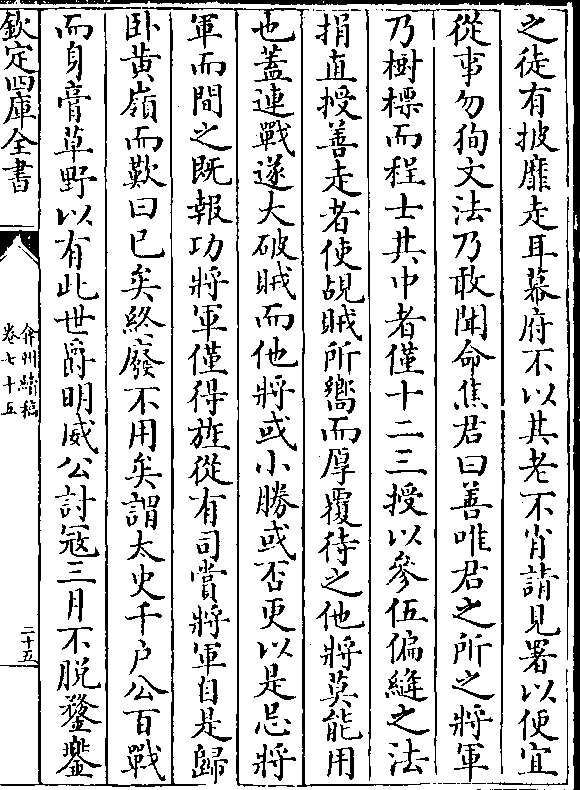 之徒有披靡走耳幕府不以其老不肖請見署以便宜
從事勿狥文法乃敢聞命焦君曰善唯君之所之將軍
乃樹標而程士其巾者僅十二三授以參伍偏縫之法
捐直授善走者使覘賊所嚮而厚覆待之他將莫能用
也蓋連戰遂大破賊而他將或小勝或否更以是忌將
軍而間之既報功將軍僅得旌從有司賞將軍自是歸
卧黄嶺而歎曰已矣終廢不用矣謂太史千户公百戰
而身膏草野以有此世爵明威公討冦三月不脱鍪
欽定四庫全書
弇州續稿
卷七十五
二十五